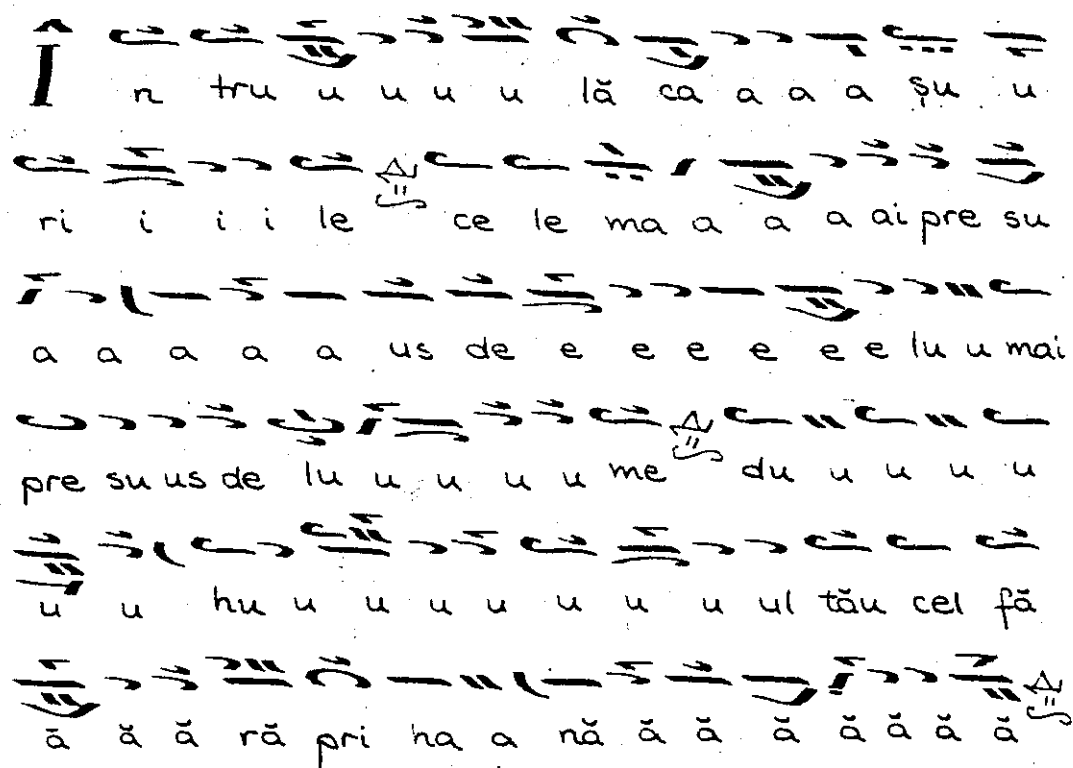 În tru u u u u lă ca a a a șu u
ri i i i le ce le ma a a a ai pre su
a a a a a us de e e e e e e lu u mai
pre su us de lu u u u u me du u u u u
u u hu u u u u u u u ul tău cel fă
ă ă ă ră pri ha a nă ă ă ă ă ă ă ă